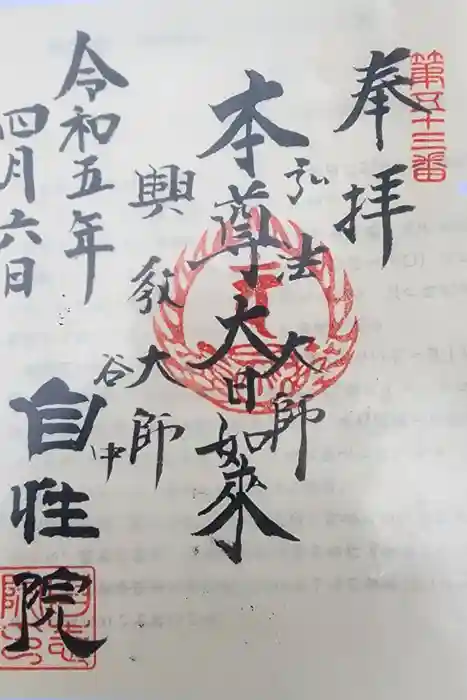 第五十三番
奉拝
弘法大師
本尊大日如来
興教大師
谷中
令和五年
四月六日
自性院